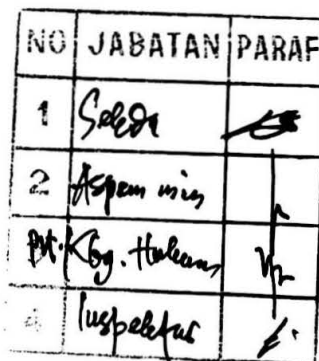 NO JABATAN PARAF
1 Sekda
2 Aspem min
Plt. Kbg. Hukum
4 Inspektur